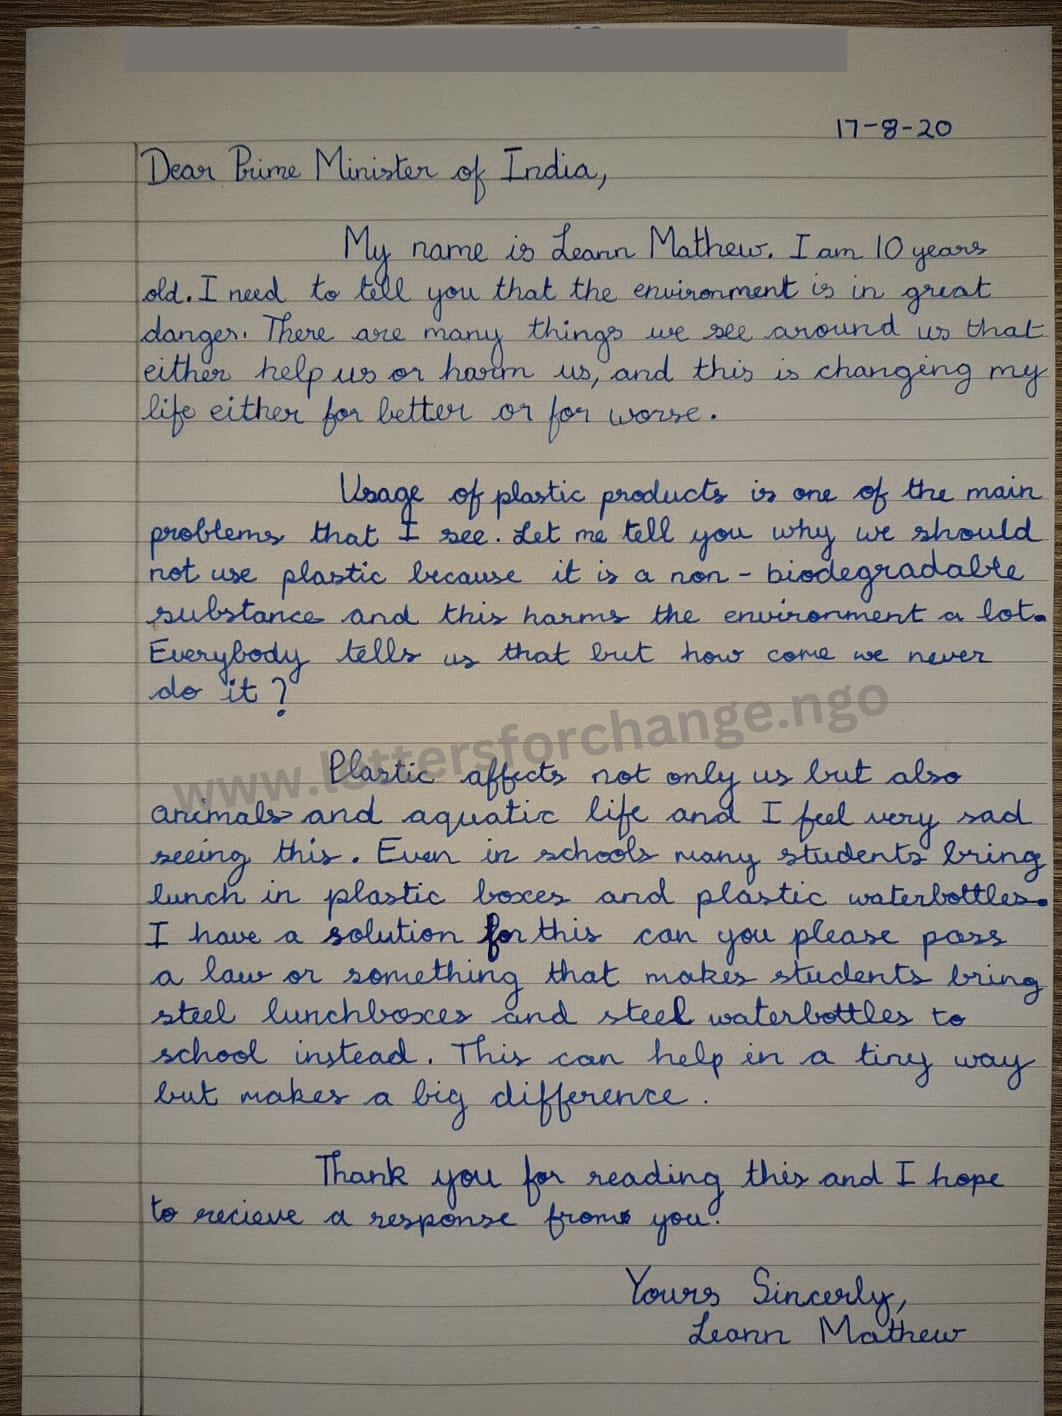 17-8-20
Dear Prime Minister of India,
My name is Leann Mathew. I am 10 years
old. I need to tell you that the environment is in great
danger. There are many things we see around us that
either help us or harm us, and this is changing my
life either for better or for worse.
Usage of plastic products is one of the main
problems that I see. Let me tell you why we should
not use plastic because it is a non-biodegradable
substance and this harms the environment a lot.
Everybody tells us that but how come we never
do it?
www.lettersforchange.ngo
Plastic affects not only us but also
animals and aquatic life and I feel very sad
seeing this. Even in schools many students bring
lunch in plastic boxes and plastic waterbottles.
I have a solution for this can you please pass
a law or something that makes students bring
steel lunchboxes and steel waterbottles to
school instead. This can help in a tiny way
but makes a big difference.
Thank you for reading this and I hope
to recieve a response from you.
Yours Sincerly,
Leann Mathew